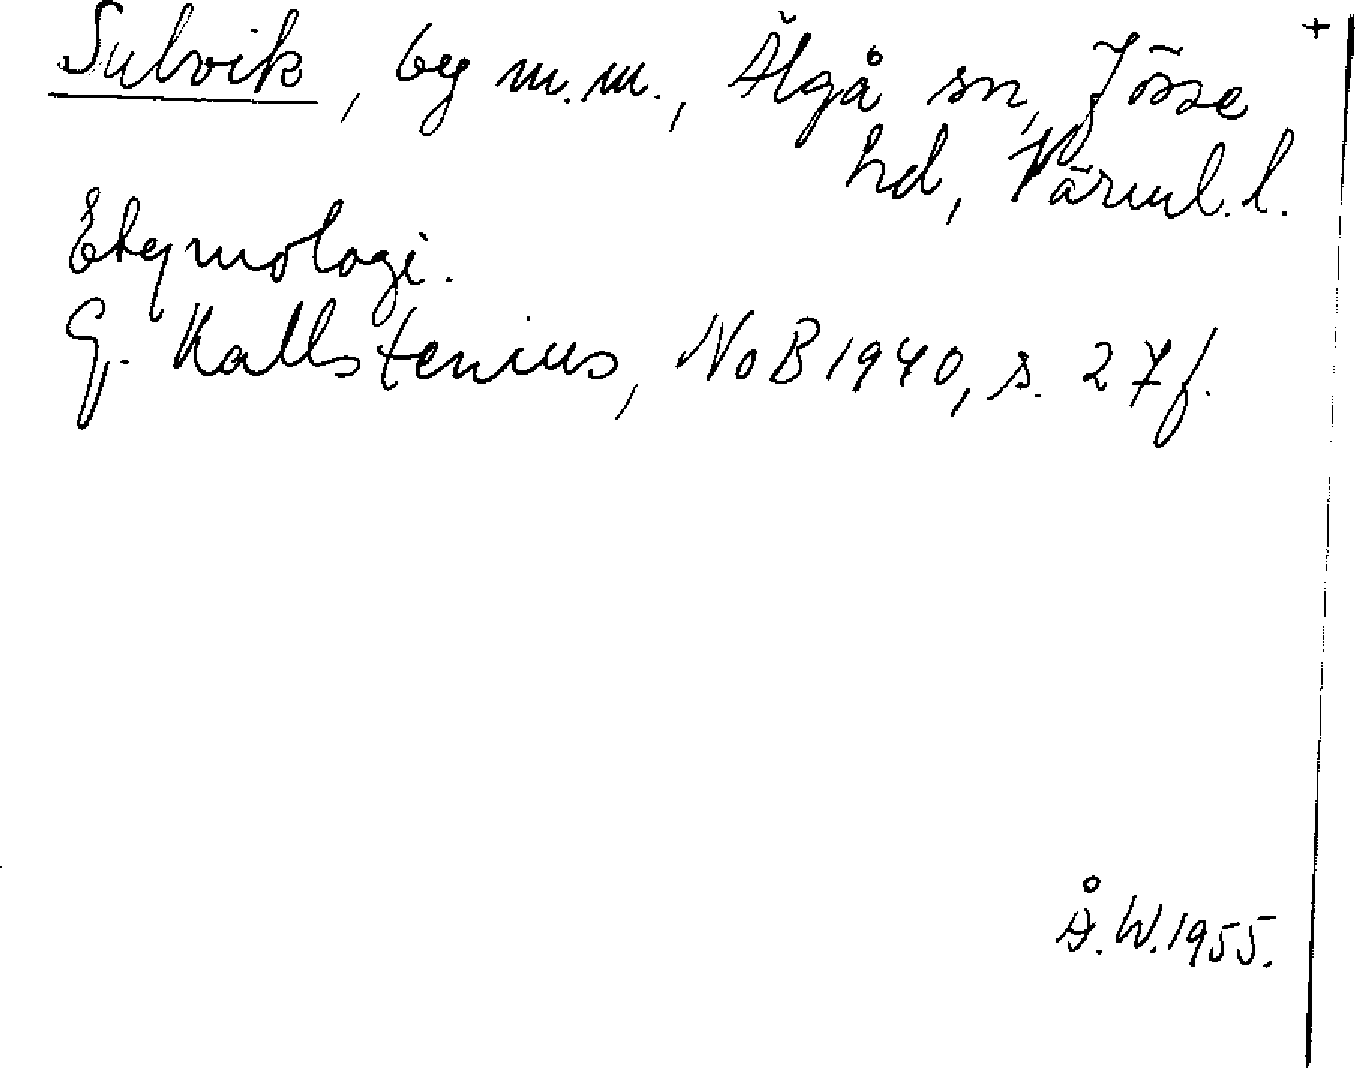 Sulvik, by m.m., Älgå sn, Jösse +
hd, Värml. l.
Etymologi.
G. Kallstenius, NoB 1940, s. 27 f.
Å. W. 1955.